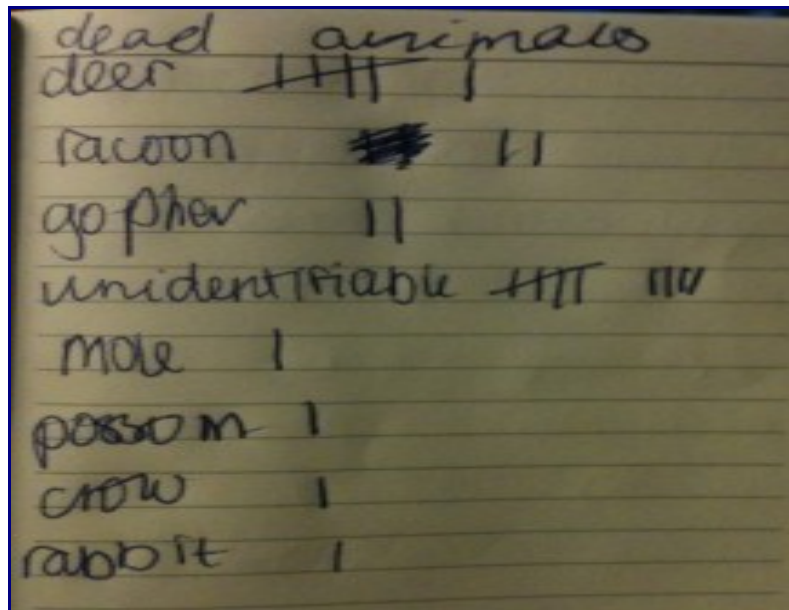 dead animals
deer 𝍸 |
racoon ||
gopher ||
unidentifiable 𝍸 ||||
mole |
possom |
crow |
rabbit |